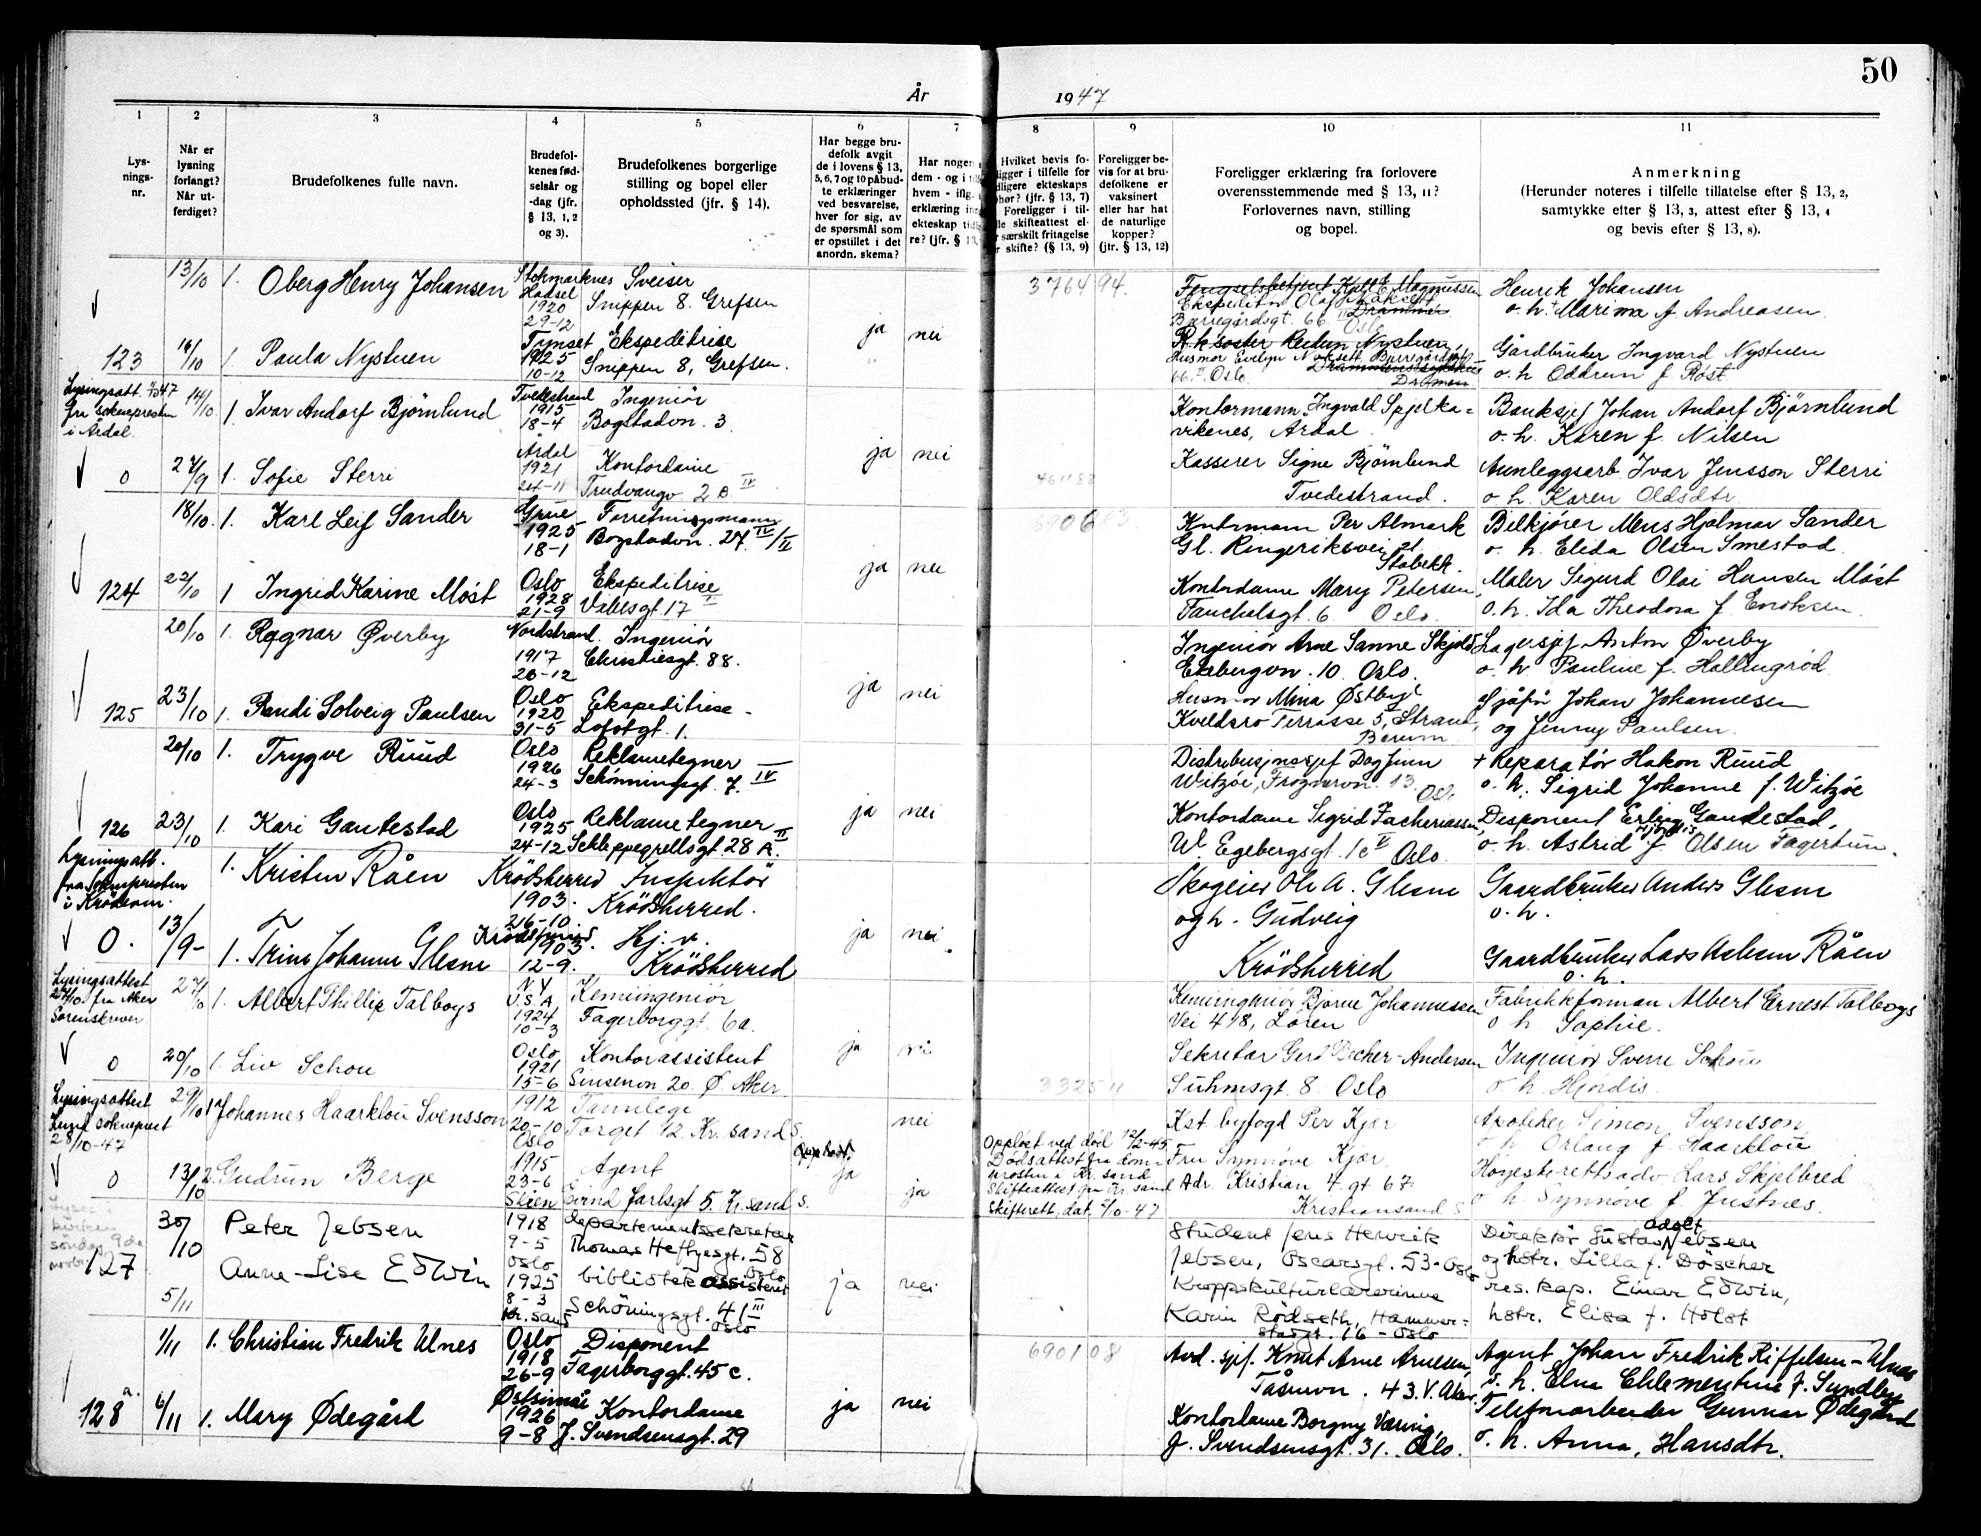 50
År 1947
1 2 3 4 5 6 7 8 9 10 11
Lys-
nings-
nr.
Når er
lysning
forlangt?
Når ut-
ferdiget?
Brudefolkenes fulle navn.
Brudefol-
kenes fød-
selsår og
-dag (jfr.
§ 13, 1, 2
og 3).
Brudefolkenes borgerlige
stilling og bopel eller
opholdssted (jfr. § 14).
Har begge bru-
defolk avgit
de i lovens § 13,
5, 6, 7 og 10 påbud-
te erklæringer
ved besvarelse,
hver for sig, av
de spørsmål som
er opstillet i det
anordn. skema?
Har nogen
dem - og i
hvem - iflg.
erklæring in
ekteskap tid
re? (jfr. § 13,
Hvilket bevis fo-
ligger i tilfelle for
dligere ekteskaps
phør? (jfr. § 13, 7)
Foreligger i til-
lle skifteattest el-
r særskilt fritagelse
r skifte? (§ 13, 9)
Foreligger be-
vis for at bru-
defolkene er
vaksinert
eller har hat
de naturlige
kopper?
(jfr. § 13, 12)
Foreligger erklæring fra forlovere
overensstemmende med § 13, 11?
Forlovernes navn, stilling
og bopel.
Anmerkning
(Herunder noteres i tilfelle tillatelse efter § 13, 2,
samtykke efter § 13, 3, attest efter § 13, 4
og bevis efter § 13, 8).
13/10 1. Oberg Henry Johansen Stokmarknes Sveiser 3764 94. Henrik Johansen
Hadsel 1920 29-12 Snippen 8. Grefsen Ekspeditør Olaf o. h. Marima f. Andreasen
Bjerregårdsgt. 66 II Oslo
ja nei
123 16/10 1 Paula Nystuen Tynset Ekspeditrise R.k.søster Reidun Nystuen, Gårdbruker Ingvard Nystuen
1925 10-12 Snippen 8, Grefsen. Husmor Evelyn o. h. Oddrun f. Røst
66 II, Oslo Drammen
Lysingsatt. 7/9 47
fra sokneprosten
i Årdal.
14/10 1 Ivar Andorf Bjørnlund Tvedestrand Ingeniør Kontormann Ingvald Spjelka= Banksjef Johan Andorf Bjørnlund
1915 18-4 Bogstadvn. 3. vikenes, Årdal. o. h. Karen f. Nilsen
ja nei
0 27/9 1. Sofie Sterri Årdal Kontordame Kasserer Signe Bjørnlund Anleggsarb. Ivar Jensson Sterri
1921 24-11 Trudvangv. 2 B. IV 461188 Tvedestrand. o. h. Karen Oldsdtr
18/10. 1. Karl Leif Sander Grue Forretningsmann Kntormann Per Almark Bilkjører Mens Hjalmar Sander
1925 18-1 Bogstadvn. 27. IV/II Gl. Ringeriksvei 21 Stabekk. o. h. Elida Olsen Smestad.
ja nei
124 22/10 1 Ingrid Karine Møst Oslo Ekspeditrise Kontordame Mary Petersen, Maler Sigurd Olai Hansen Møst
1928 21-9 Vallesgt. 17 I Fauchalsgt. 6 Oslo. o. h. Ida Theodora f. Eriksen.
20/10 1. Ragnar Øverby Nordstrand. Ingeniør Ingeniør Arne Sanne Skjold Lagersjef Anton Øverby
1917 26-12 Christiesgt. 88. Ekebergvn. 10. Oslo. o. h. Pauline f. Hallingrød
ja nei
125 23/10 1. Randi Solveig Paulsen Oslo Ekspeditrise Husmor Mina Østbye Sjåfør Johan Johannesen
1920 31-5 Lofotgt. 1. Kveldsro Terrasse 5, Strand, Bærum og Jenny Paulsen.
20/10 1. Trygve Ruud Oslo Reklametegner Distribusjonssjef Dag Finn + Reparatør Håkon Ruud
1926 24-3 Schønningsgt. 7. IV Witzøe, Frognervn. 13. Oslo o. h. Sigrid Johanne f. Witzøe
ja nei
126 23/10 1. Kari Gautestad Oslo Reklametegner Kontordame Sigrid Zachariassen, Disponent Erling Gautestad.
1925 24-12 Schleppegrellsgt. 28 A. II W Egebergsgt. 1c V Oslo. o. h. Astrid Hjørdis f. Olsen Fagertun.
Lysningsatt.
fra Sokneprosten
i Krødsherr.
1. Kristen Råen Krödsherred Inspektör Skogeier Ole A. Glesne Gaardbruker Anders Glesne
1903. 26-10 Krödsherred. og h. Gudveig o. h.
ja nei
0. 13/9- 1. Trine Johanne Glesne Krödsherred Hj. v. Gaardbruker Lars Aslesen Råen
1903. 12-9. Krödsherred Krödsherred o. h.
Lysningsattest
27/10 fra Aker
Sorenskriver
27/10 1. Albert Phillip Talboys N.Y. U.S.A. Kemiingeniør Kemiingeniør Bjarne Johannessen Fabrikkforman Albert Ernest Talboys
1924 10-3 Fagerborggt. 6a. Vei 418, Løren o h Sophie.
ja nei
0 20/10 1. Liv Schou Oslo Kontorassistent Sekretær Gerd Becher-Andersen Ingeniør Sverre Schou
1921 15-6 Sinsenvn 20. Ø. Aker 3325 11 Suhmsgt 8. Oslo o h Hjørdis
Lysningsattest
Lund sokneprest
28/10-47
29/10 1 Johannes Haarklou Svensson 1912 Tannlege Kst byfogd Per Kjær Apotheker Simon Svensson
20-10 Oslo Torget 12. Kr.sand S. nei o h Orlaug f. Haarklou
Oppløst ved død 12/2-45
Dødsattest fra dom=
prosten i Kr. sand
Skifteattest fra Kr. sand
Skifterett, dat. 2/10-47
0 13/10 2. Gudrun Berge 1915 Agent ja Fru Synnøve Kjær Høyesterettsadv. Lars Skjelbred
23-6 Skien Eivind Jarlsgt 5. Kr. sand S. ja Adr. Kristian 4 gt 67 Kristiansand S o h Synnøve f. Justnes.
Lyses i
kirken
søndag 9de
novbr.
30/10 Peter Jebsen 1918 departementssekretær Student Jens Henrik Direktør Gustav Adolf Jebsen
9-5 Oslo Thomas Heftyesgt. 58 Oslo Jebsen, Oscarsgt. 53-Oslo og hstr. Lilla f. Döscher
127 Anne-Lise Edwin 1925 bibliotekassistent ja nei Kroppskulturlærerinne res. kap. Einar Edwin,
5/11 8-3 Kr. sand Schöningsgt. 41 III Oslo Karin Rödseth, Hammer-
stadgt. 16 - Oslo hstr. Elisa f. Holst
1/11 1. Christian Fredrik Ulnes Oslo Disponent 6901 08 Avd. sjef. Knut Arne Arnesen, Agent Johan Fredrik Riffelsen-Ulnes
1918 26-9 Fagerborggt. 45 c. Tåsenvn. 43. V. Aker o. h. Elna Chlementine f. Sundbye
a.
128 6/11 1. Mary Ødegård Østsinni Kontordame ja nei Kontordame Borgny Værvig, Telefonarbeider Gunnar Ødegård
1926 9-8 J. Svendsensgt. 29 J. Svendsensgt. 31. Oslo. o. h. Anna, Hansdtr.